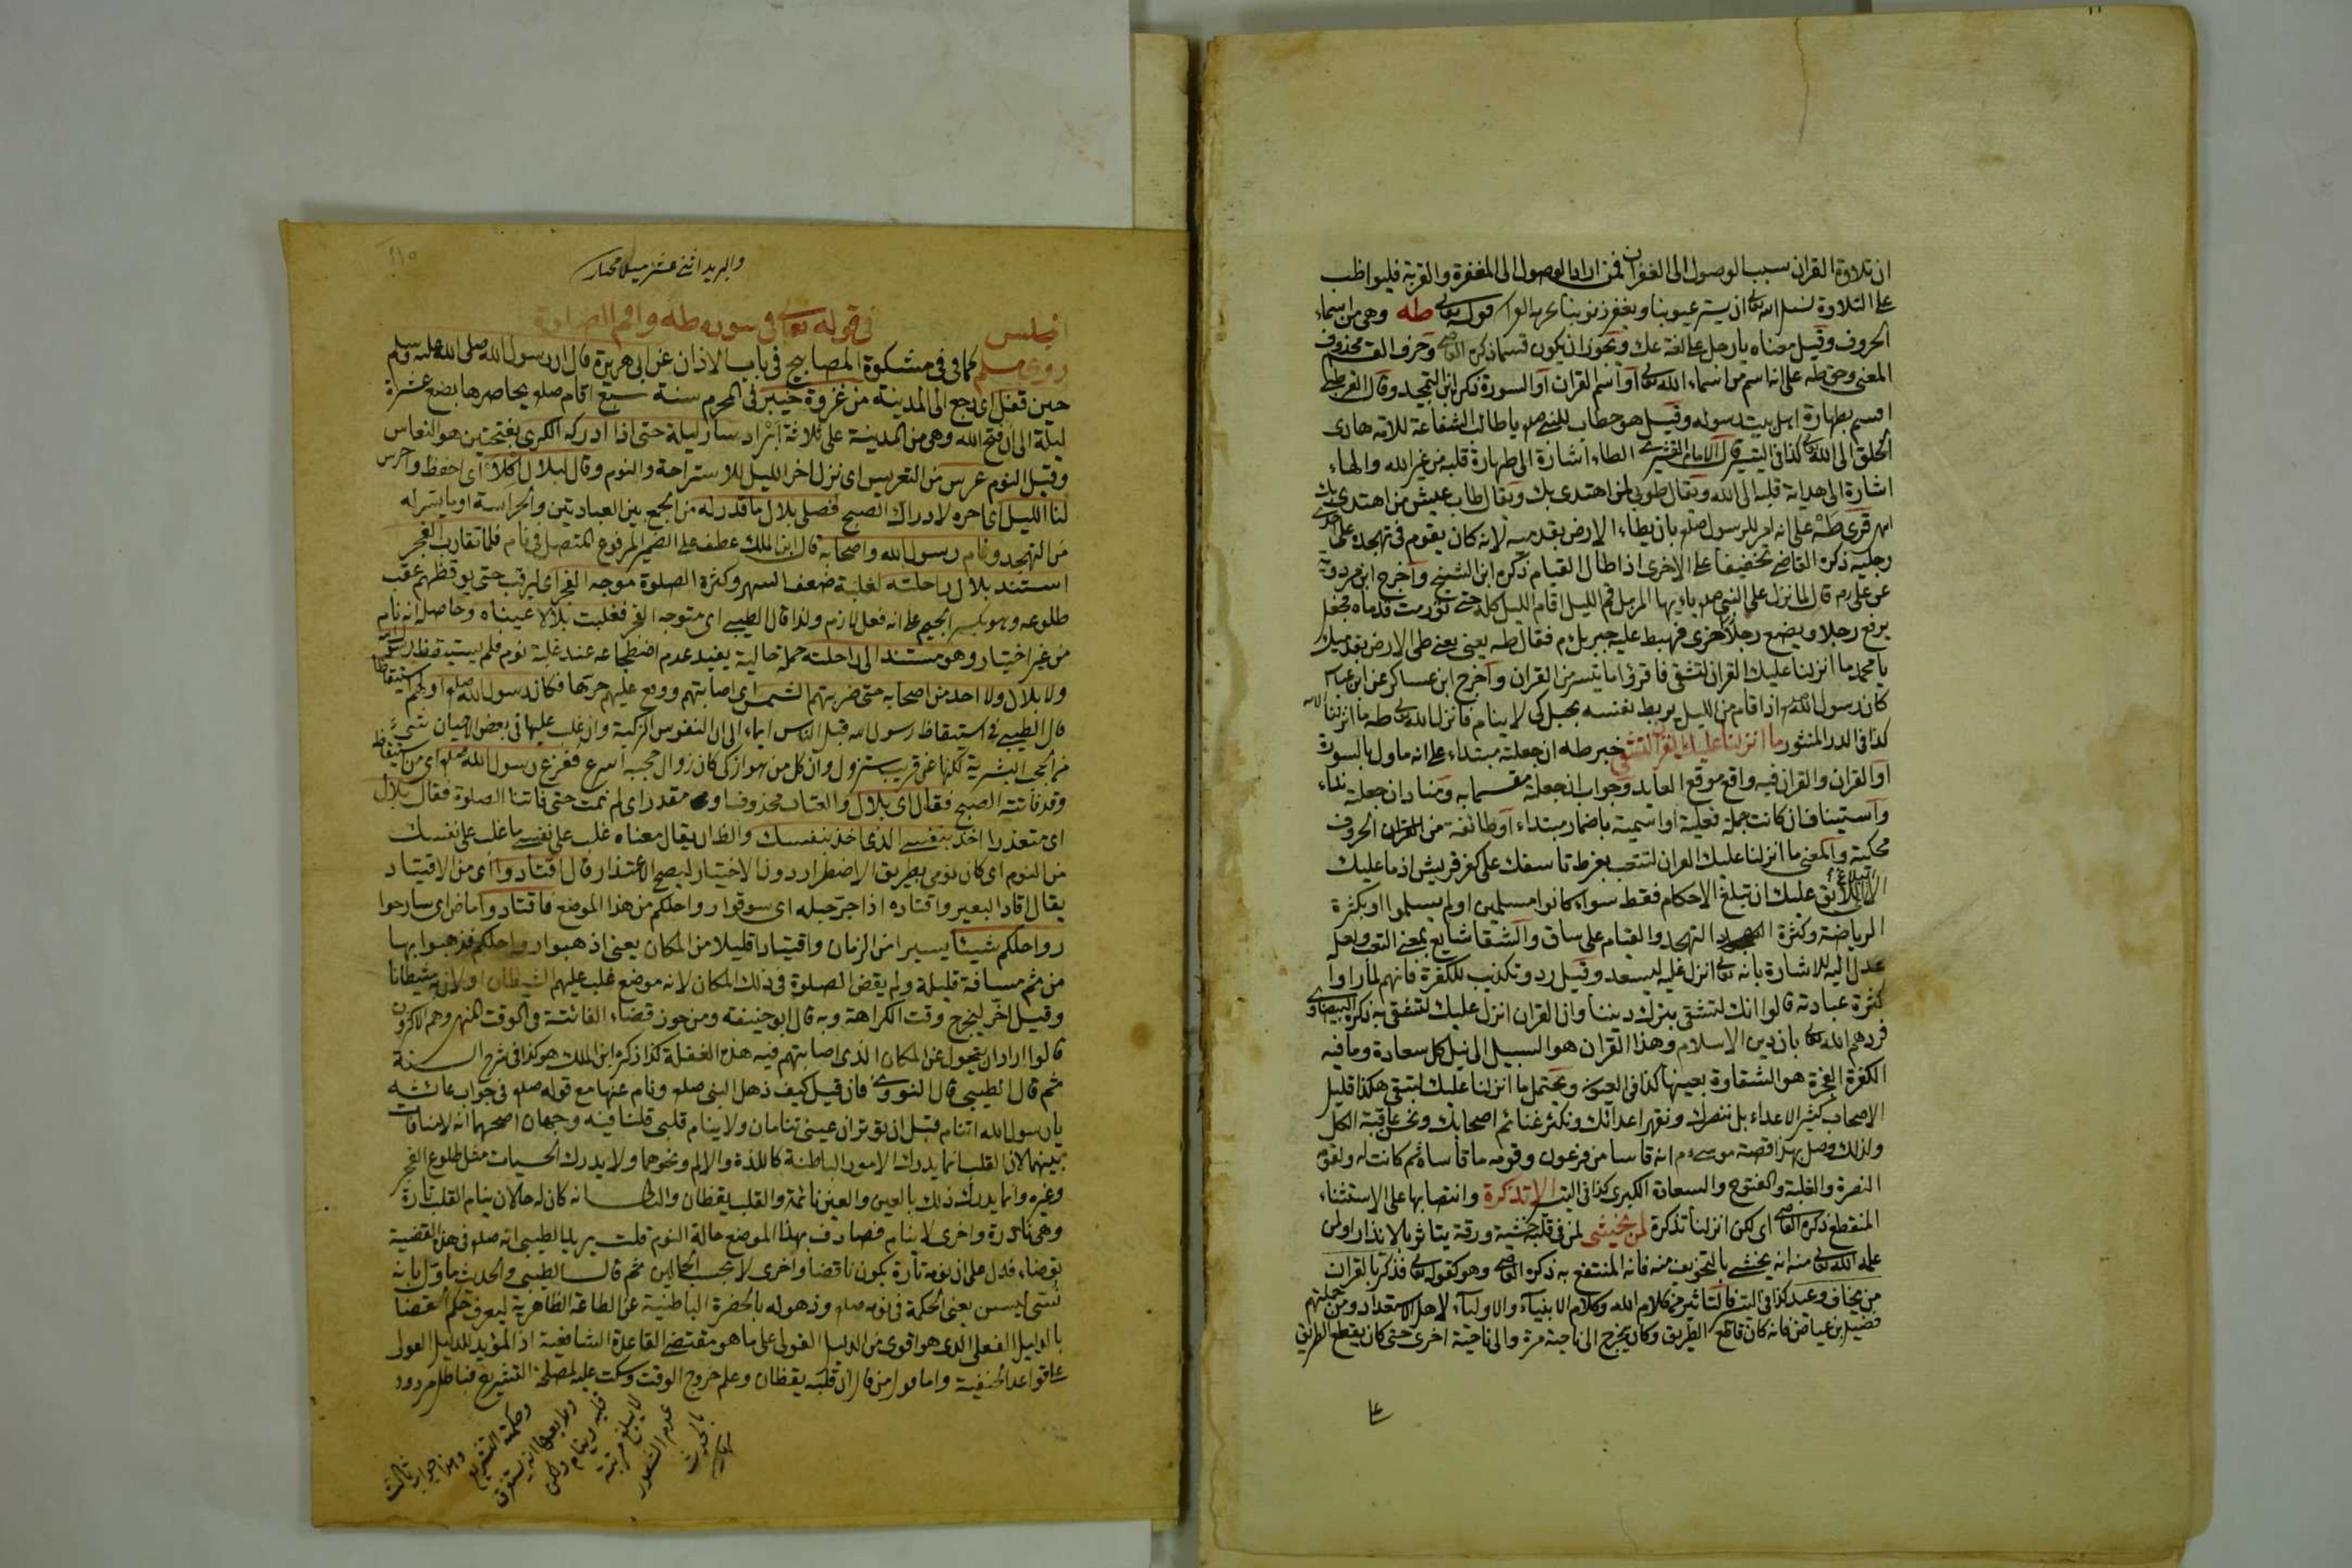 ان تلاوة القران سبب الوصول الى الغفران فمن اراد الوصول الى المغفرة والقربة فليواظب
على التلاوة نسأل الله تعالى ان يستر عيوبنا ويغفر ذنوبنا قوله تعالى طه وهى من اسماء
الحروف وقيل معناه يا رجل على لغة عك ويجوز ان يكون قسما ذكره القاضى وحرف القسم محذوف
المعنى وحق طه على انه اسم من اسماء الله تعالى او اسم القران او السورة ذكره ابن التمجيد وقال القرطبى
اقسم بطهارة اهل بيت رسوله وقيل هو خطاب للنبى صلعم يا طالب الشفاعة للامة هادى
الخلق الى الله تعالى كذا فى التيسير قال الامام القشيرى الطاء اشارة الى طهارة قلبه من غير الله والهاء
اشارة الى هداية قلبه الى الله ويقال طوبى لمن اهتدى بك ويقال طاب عيش من اهتدى بك
انتهى قرئ طه على انه امر للرسول صلعم بان يطاء الارض بقدميه لانه كان يقوم فى تهجده على احدى
رجليه ذكره القاضى تخفيفا على الاخرى اذا طال القيام ذكره ابن الشيخ واخرج ابن مردوية
عن على رض قال لما نزل على النبى صلعم يا ايها المزمل قم الليل اقام الليل كله حتى تورمت قدماه فجعل
يرفع رجلا ويضع رجلا اخرى فهبط عليه جبريل م فقال طه يعنى طى الارض بقدميك
يا محمد ما انزلنا عليك القران لتشقى فاقرؤا ما يتيسر من القران واخرج ابن عساكر عن ابن عباس
كان رسول الله صلعم اذا قام من الليل يربط نفسه بحبل كى لا ينام فانزل الله تعالى طه ما انزلنا الاية
كذا فى الدر المنثور ما انزلنا عليك القران لتشقى خبر طه ان جعلته مبتداء على انه ماول بالسورة
او القران والقران فيه واقع موقع العايد وجواب ان جعلته مقسما به ومناد ان جعلته نداء
واستيناف ان كانت جملة فعلية او اسمية باضمار مبتداء او طائفة من الحروف
محكية والمعنى ما انزلنا عليك القران لتتعب بفرط تأسفك على كفر قريش اذ ما عليك
الا ان تبلغ الاحكام فقط سواء كانوا مسلمين او لم يسلموا او بكثرة
الرياضة وكثرة التهجد والقيام على ساق والشقا شايع بمعنى التعب ولعله
عدل اليه للاشارة بانه تعالى انزل عليه ليسعد وقيل رد وتكذيب للكفرة فانهم لما راوا
كثرة عبادته قالوا انك لتشقى بترك ديننا وان القران انزل عليك لتشقى به ذكره البيضاوى
فردهم الله تعالى بان دين الاسلام وهذا القران هو السبيل الى نيل كل سعادة وما فيه
الكفرة الفجرة هو الشقاوة بعينها كذا فى العيون ويحتمل ما انزلنا عليك لتبقى هكذا قليل
الاصحاب كثير الاعداء بل ننصرك ونقهر اعدائك ونكثر غنائم اصحابك ونحسن عاقبة الكل
ولذلك وصل بهذا قصة موسى م انه قاسا من فرعون وقومه ما قاساه ثم كانت له ولقومه
النصرة والغلبة والفتوح والسعادة الكبرى كذا فى التيسير الا تذكرة وانتصابها على الاستثناء
المنقطع ذكره القاضى اى لكن انزلنا تذكرة لمن يخشى لمن فى قلبه خشية ورقة يتاثر بالانذار او لمن
علم الله تعالى منه انه يخشى بالتخويف منه فانه المنتفع به ذكره القاضى وهو كقوله تعالى فذكر بالقران
من يخاف وعيد كذا فى التيسير فالتاثير من كلام الله وكلام الانبياء والاولياء لاهل الاستعداد ومن جملتهم
فضيل بن عياض فانه كان قاطع الطريق وكان يخرج الى ناحية مرة والى ناحية اخرى حتى كان يقطع الطريق
على
والبريد اثنى عشر ميلا مختار
المجلس فى قوله تعالى فى سورة طه واقم الصلوة
روى مسلم كما فى مشكوة المصابيح فى باب الاذان عن ابى هريرة قال ان رسول الله صلى الله عليه وسلم
حين قفل اى رجع الى المدينة من غزوة خيبر فى المحرم سنة سبع اقام صلعم يحاصرها بضع عشرة
ليلة الى ان فتح الله وهى من المدينة على ثلاثة ابراد سار ليلة حتى اذا ادركه الكرى بفتحتين هو النعاس
وقيل النوم عرس من التعريس اى نزل اخر الليل للاستراحة والنوم وقال لبلال اكلأ اى احفظ واحرس
لنا الليل اى اخره لادراك الصبح فصلى بلال ما قدر له من الجمع بين العبادتين والحراسة او ما يتيسر له
من التهجد ونام رسول الله واصحابه قال ابن الملك عطف على الضمير المرفوع المتصل فى نام فلما تقارب الفجر
استند بلال راحلته لغلبة ضعف السهر وكثرة الصلوة موجه الفجر اى ليرقب حتى يوقظهم عقب
طلوعه وهو بكسر الجيم على انه فعل لازم ولذا قال الطيبى اى متوجه الفجر فغلبت بلالا عيناه وحاصله انه نام
من غير اختيار وهو مستند الى راحلته جملة حالية يفيد عدم اضطجاعه عند غلبة نوم فلم يستيقظ رسول الله
ولا بلال ولا احد من اصحابه حتى ضربتهم الشمس اى اصابتهم ووقع عليهم حرها فكان رسول الله صلعم اولهم استيقاظا
قال الطيبى فى استيقاظ رسول الله قبل الناس ايماء الى ان النفوس الزكية وان غلب عليها فى بعض الاحيان شئ
من الحجب البشرية لكنها عن قريب ستزول وان كل من هو ازكى كان زوال حجبه اسرع ففزع رسول الله صلعم اى من استيقاظه
وقد فاتته الصبح فقال اى بلال والعتاب محذوف او مقدر اى لم نمت حتى فاتتنا الصلوة فقال بلال
اى متعذرا اخذ بنفسى الذى اخذ بنفسك والظ ان يقال معناه غلب على نفسى ما غلب على نفسك
من النوم اى كان نومى بطريق الاضطرار دون الاختيار ليصح الاعتذار قال اقتادوا اى من الاقتياد
يقال اقاد البعير واقتاده اذا جر حبله اى سوقوا رواحلكم من هذا الموضع فاقتادوا ماض اى ساروا
رواحلهم شيئا يسيرا من الزمان واقتيادا قليلا من المكان يعنى اذهبوا رواحلكم فذهبوا بها
من ثم مسافة قليلة ولم يقض الصلوة فى ذلك المكان لانه موضع غلب عليهم الشيطان او لان به شيطانا
وقيل اخر ليخرج وقت الكراهة وبه قال ابو حنيفة ومن جوز قضاء الفائتة فى الوقت المنهى وهم الاكثرون
قالوا اراد ان يتحول عن المكان الذى اصابتهم فيه هذه الغفلة كذا ذكره ابن الملك هو كذا فى شرح السنة
ثم قال الطيبى قال النووى فان قيل كيف ذهل النبى صلعم ونام عنها مع قوله صلعم فى جواب عائشة
يا رسول الله اتنام قبل ان توتر ان عينى تنامان ولا ينام قلبى قلنا فيه وجهان اصحهما انه لا منافات
بينهما لان القلب انما يدرك الامور الباطنة كاللذة والالم ونحوهما ولا يدرك الحسيات مثل طلوع الفجر
وغيره وانما يدرك ذلك بالعين والعين نائمة والقلب يقظان والثانى انه كان له حالان ينام القلب تارة
وهى نادرة واخرى لا ينام فصادف بهذا الموضع حالة النوم قلت يريد الطيبى انه صلعم فى هذه القضية
توضاء فدل على ان نومه تارة يكون ناقضا واخرى لا بحسب الحالين ثم قال الطيبى والحديث مأول بانه
نسى ليسن يعنى الحكمة فى نومه صلعم وذهوله بالحضرة الباطنية عن الطاعة الظاهرية ليعرف حكم القضا
بالدليل الفعلى الذى هو اقوى من الدليل القولى على ما هو مقتضى القاعدة الشافعية اذ المؤيد للدليل القولى
على قواعد الحنفية واما قول من قال ان قلبه يقظان وعلم خروج الوقت وسكت عليه لمصلحة التشريع فباطل مردود
وهذا جواب ثالث
وحكمة التشريع